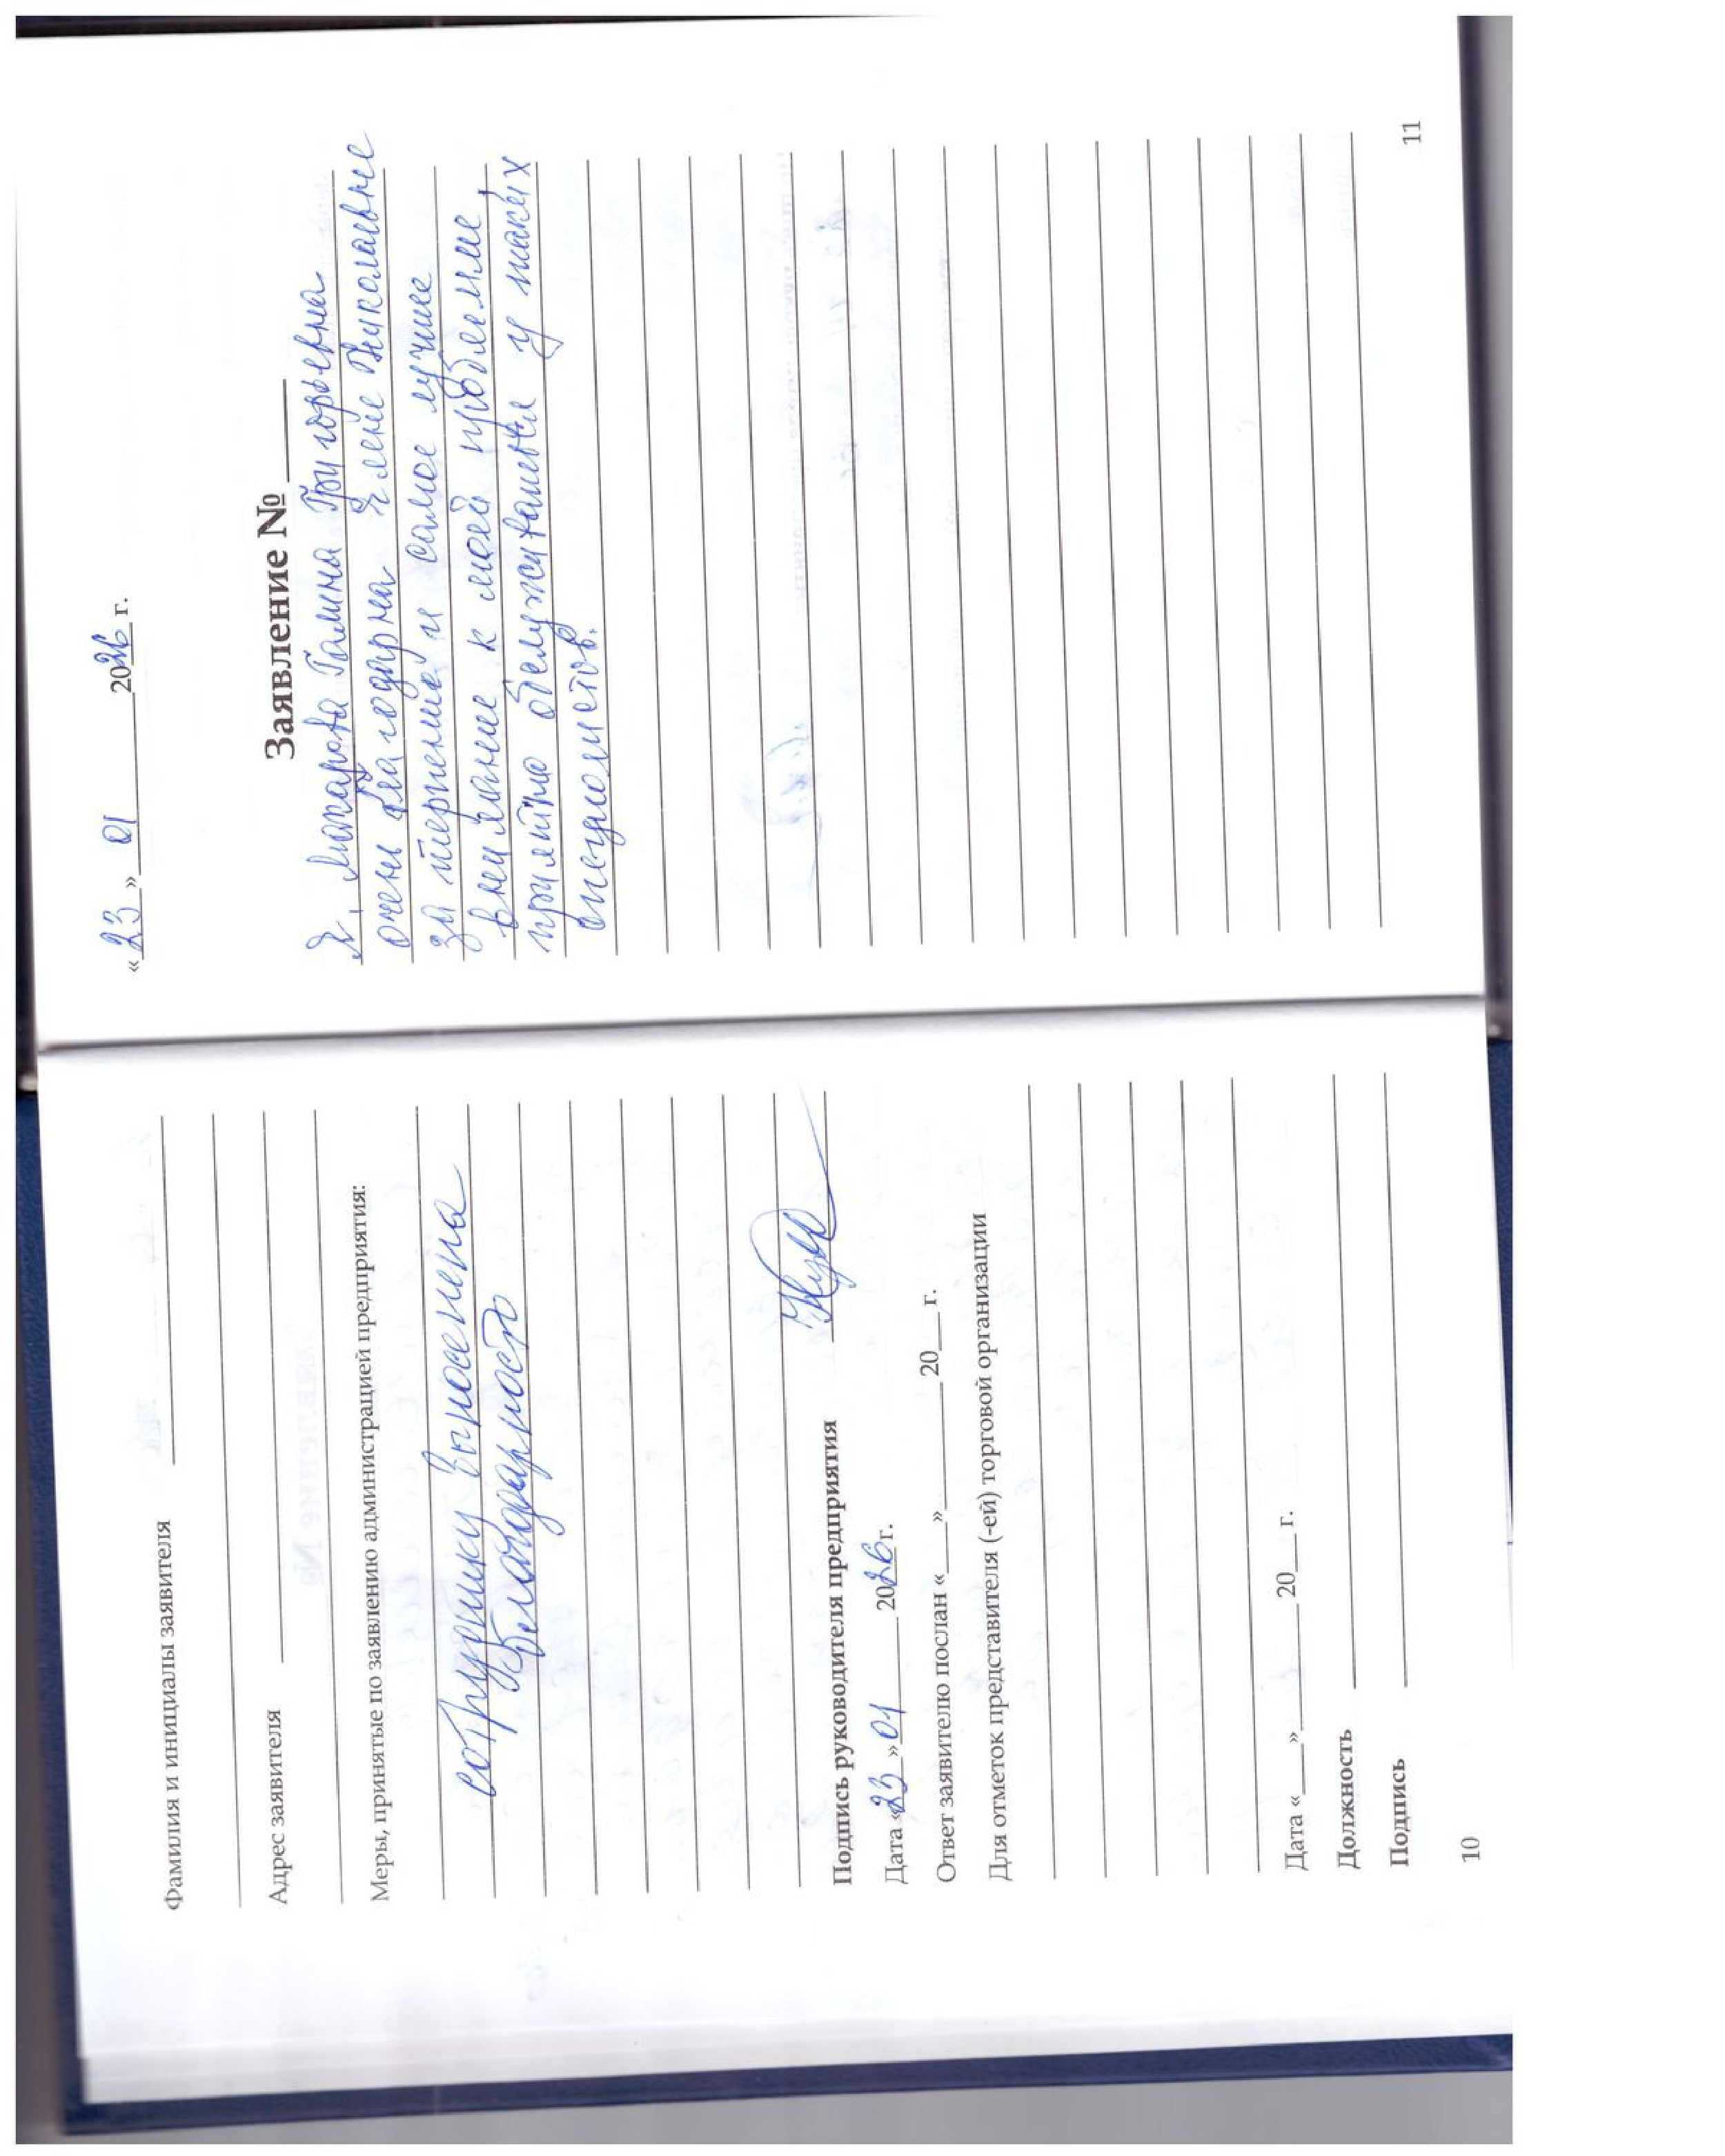 Фамилия и инициалы заявителя
Адрес заявителя
Меры, принятые по заявлению администрацией предприятия:
сотруднику вынесена
благодарность
Подпись руководителя предприятия
Дата «23» 01 2026 г.
Ответ заявителю послан «___» ________ 20__ г.
Для отметок представителя (-ей) торговой организации
Дата «___» ________ 20__ г.
Должность
Подпись
10
«23» 01 2026 г.
Заявление №
Я, Макарова Галина Григорьевна
очень благодарна Елене Николаевне
за терпение и самое лучшее
внимание к моей проблеме,
приятно обслуживаться у таких
специалистов.
11